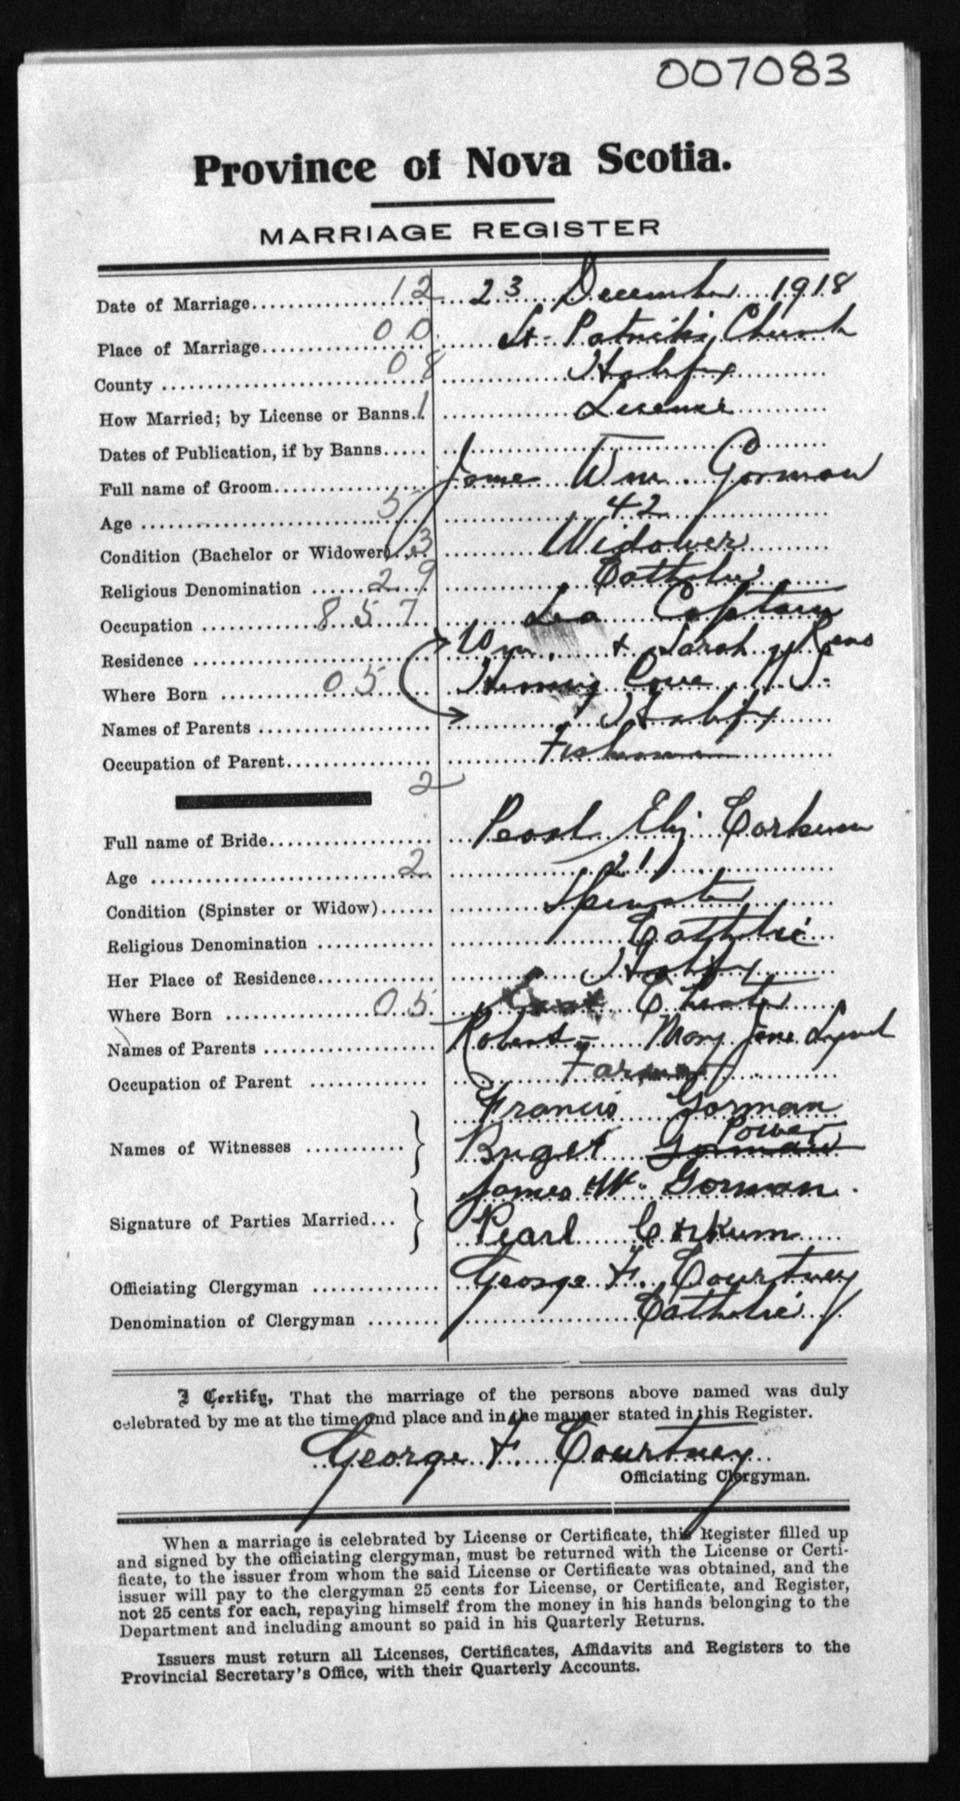 007083
Province of Nova Scotia.
MARRIAGE REGISTER
Date of Marriage 12 23 December 1918
Place of Marriage 00 St. Patrick's Church
County 08 Halifax
How Married; by License or Banns 1 License
Dates of Publication, if by Banns
Full name of Groom James Wm. Gorman
Age 5 42
Condition (Bachelor or Widower) 3 Widower
Religious Denomination 29 Catholic
Occupation 857 Sea Captain
Residence Wm. + Sarah
Where Born 05 Herring Cove N.S.
Names of Parents Halifax
Occupation of Parent Fisherman
2
Full name of Bride Pearl Eliz Corkum
Age 2 21
Condition (Spinster or Widow) Spinster
Religious Denomination Catholic
Her Place of Residence Halifax
Where Born 05 East Chester
Names of Parents Robert = Mary Jane
Occupation of Parent Farmer
Francis Gorman
Names of Witnesses } Briget Gorman Power
James W. Gorman.
Signature of Parties Married... } Pearl Corkum
Officiating Clergyman George F. Courtney
Denomination of Clergyman Catholic
I Certify, That the marriage of the persons above named was duly
celebrated by me at the time and place and in the manner stated in this Register.
George F. Courtney
Officiating Clergyman.
When a marriage is celebrated by License or Certificate, this Register filled up
and signed by the officiating clergyman, must be returned with the License or Certi-
ficate, to the issuer from whom the said License or Certificate was obtained, and the
issuer will pay to the clergyman 25 cents for License, or Certificate, and Register,
not 25 cents for each, repaying himself from the money in his hands belonging to the
Department and including amount so paid in his Quarterly Returns.
Issuers must return all Licenses, Certificates, Affidavits and Registers to the
Provincial Secretary's Office, with their Quarterly Accounts.